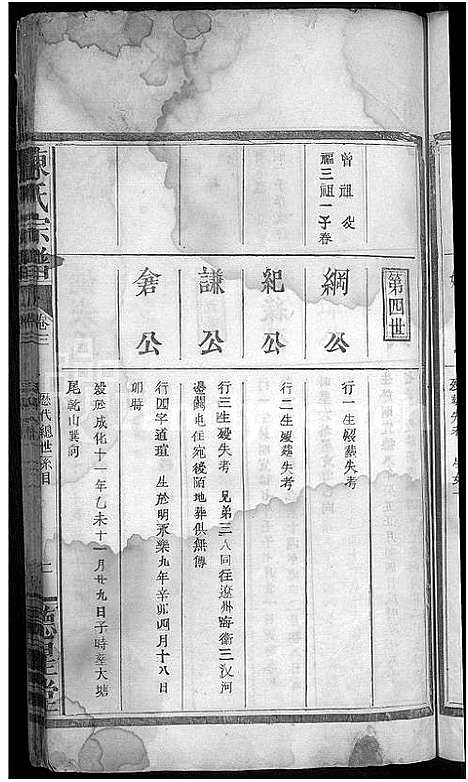 第四世
曾祖發
福三祖一子春
綱公
行一生歿葬失考
紀公
行二生歿葬失考
謙公
行三生歿失考 兄弟三人同往遼州海衛三汊河
邊關屯住宛後陌地葬俱無傳
倉公
行四字道瑄 生於明永樂九年辛卯四月十八日
卯時
歿於成化十一年乙未十一月廿九日子時葬大塘
尾乾山巽向
陳氏宗譜
卷三
歷代總世系目